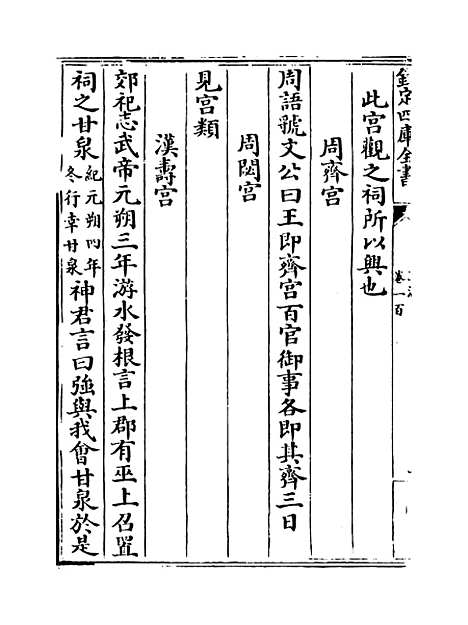 欽定四庫全書
卷一百
此宮觀之祠所以興也
周齊宮
周語虢文公曰王即齊宮百官御事各即其齊三日
周閟宮
見宮類
漢壽宮
郊祀志武帝元朔三年游水發根言上郡有巫上召置
祠之甘泉紀元朔四年冬行幸甘泉神君言曰強與我會甘泉於是